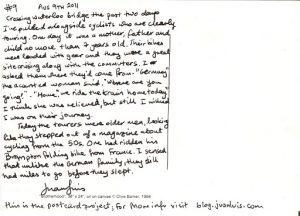 #9 Aug 9TH 2011
Crossing Waterloo bridge the past two days
I've pulled alongside cyclists who are clearly
touring. One day it was a mother, father and
child no more than 9 years old. Their bikes
were loaded with gear and they were a great
site crossing along with the commuters. I
asked them where they'd come from. "Germany"
the accented woman said. "Where are you
going?". "Home", we ride the train home today,"
I think she was relieved, but still I wished
I was on their journey.
Today the tourers were older men, looking
like they stepped out of a magazine about
cycling from the 50s. One had ridden his
Brompton folding bike from France. I sensed
that unlike the German family, they still
had miles to go before they slept.
Juan Luis
"Brotherhood", 36" x 24", oil on canvas © Clive Barker, 1998
This is the postcard project, for more info visit blog.juanluis.com